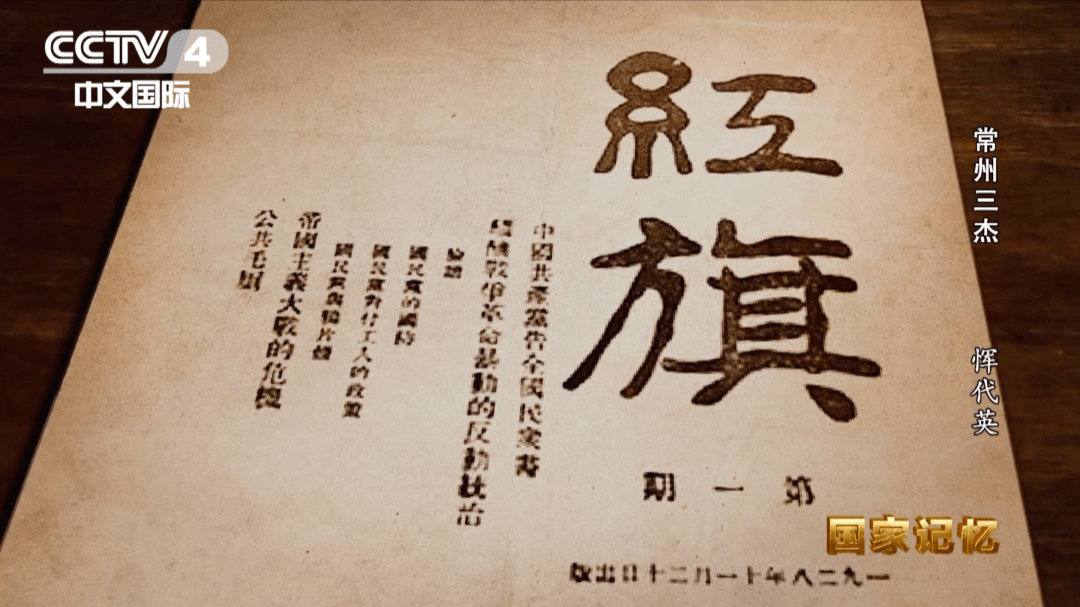 CCTV 4
中文国际
常州三杰
恽代英
紅旗
中國共產黨告全國民衆書
戰爭革命暴動的反動統治
國民黨的國防
國民黨對付工人的政策
國民黨與鴉片煙
帝國主義大戰的危機
公共毛厠
第一期
一九二八年十一月二十日出版
国家记忆